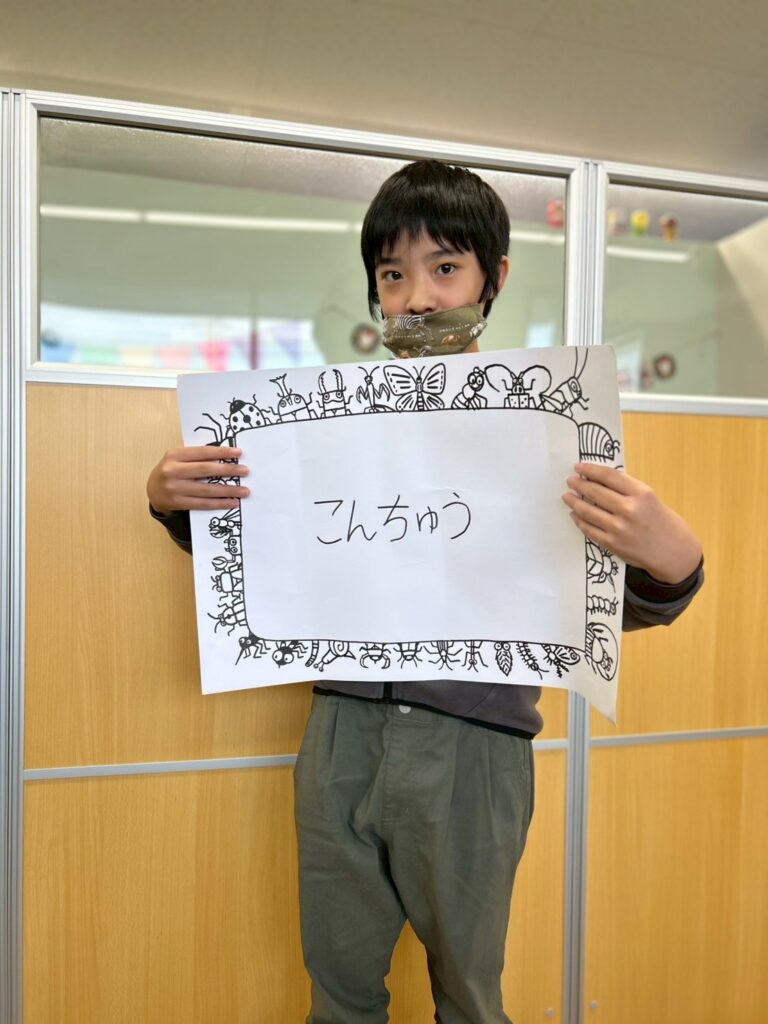 こんちゅう